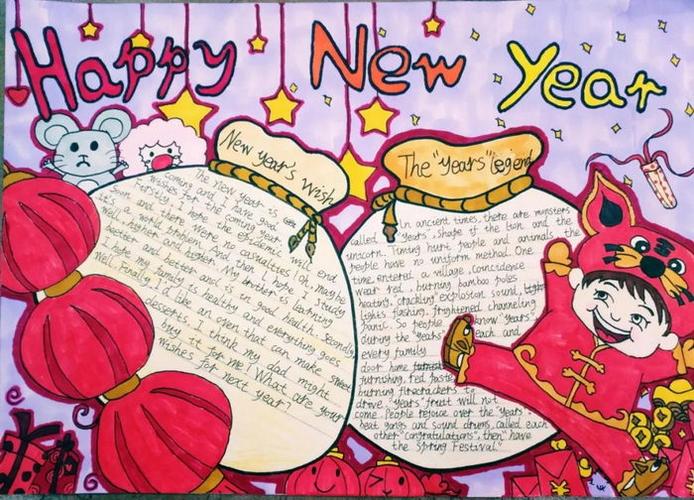 Happy New Year
New Year's Wish
The New Year is
coming and I have good
wishes for the coming year.
Firstly, I hope the epidemic will end
soon and there were no casualties. Oh, maybe
it's a world problem. And then I hope I study
well, higher and higher. My brother is learning
better and better and is in good health. Secondly,
I hope my family is healthy and everything goes
well. Finally, I'd like an oven that can make sweet
desserts. I think my dad might
buy it for me! What are your
wishes for next year?
The "Years" legend
In ancient times, there are monsters
called "years", shape if the lion and the
unicorn. Timing hurt people and animals, the
people have no uniform method. One
time, entered a village, coincidence
wear red, burning bamboo poles
heating, crackling explosion sound,
lights flashing, frightened channeling
panic. So people "know "years".
during the "years" each and
every family
door home
furnishing, red paste
burning firecrackers to
drive "years" fruit will not
come. People rejoice over the "years"
beat gongs and sound drums, called each
other "congratulations", then "have
the Spring Festival."